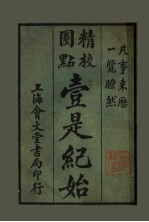 凡事来歷
一覽瞭然
精校
圈點
壹是紀始
上海會文堂書局印行